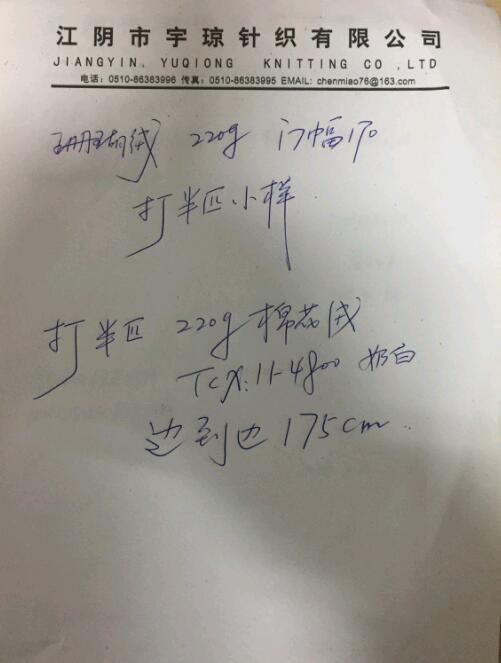 江阴市宇琼针织有限公司
JIANGYIN, YUQIONG KNITTING CO ,LTD
电话：0510-86383996 传真：0510-86383995 EMAIL: chenmiao76@163.com
珊瑚绒 220g 门幅170
打半匹小样
打半匹 220g 棉花绒
TCX:11-4800 奶白
边到边 175cm